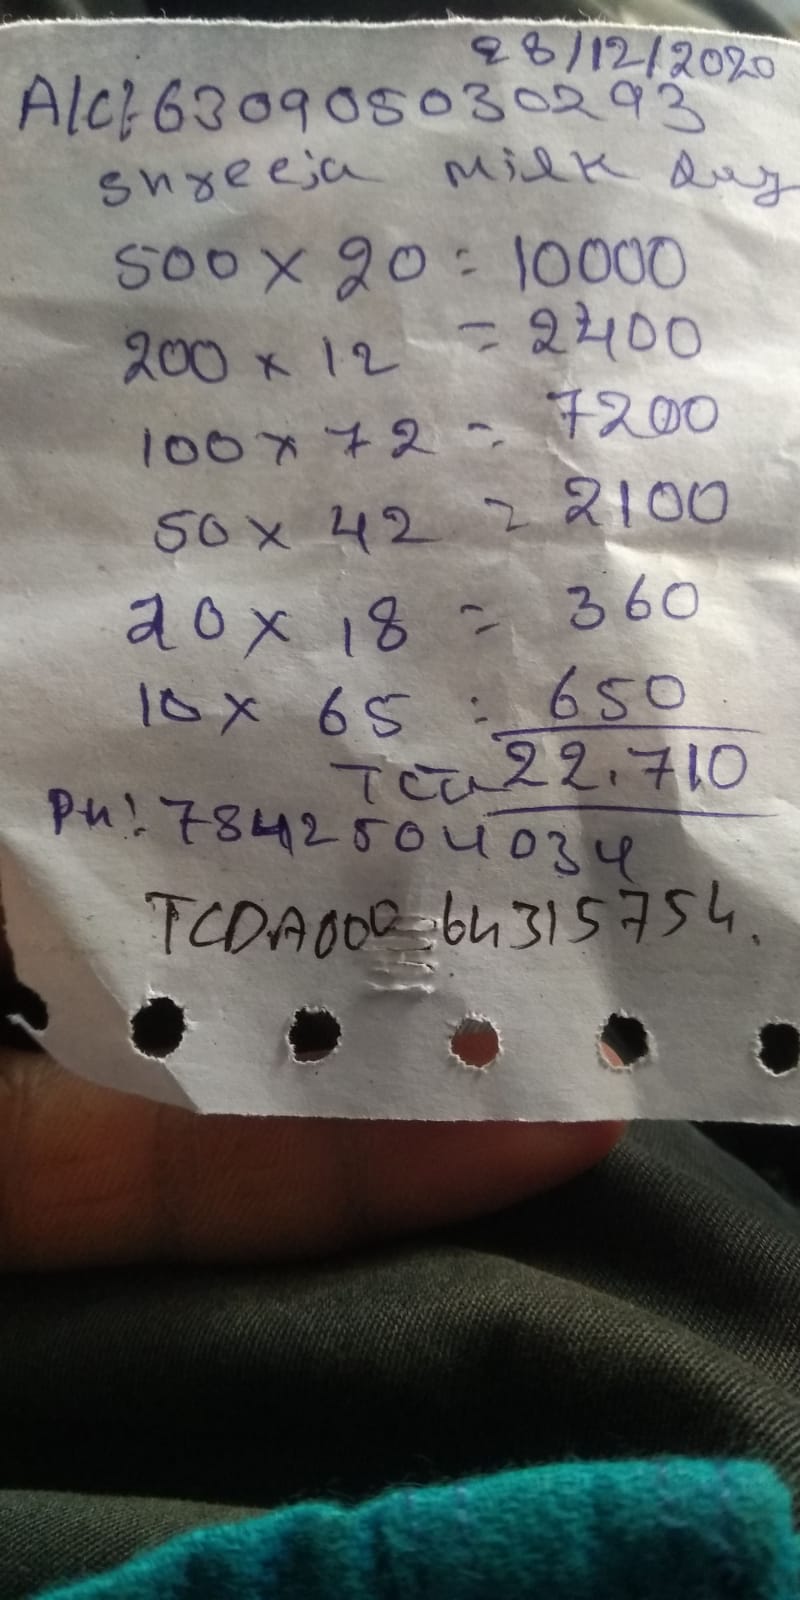 28/12/2020
A/C: 630905030293
Shreeja Milk
500 x 20 = 10000
200 x 12 = 2400
100 x 72 = 7200
50 x 42 = 2100
20 x 18 = 360
10 x 65 = 650
22.710
PH: 7842504034
TCDA000 64315754.